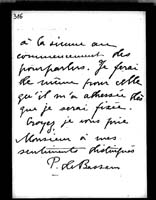 316
à la sienne au
commencement des
pourparlers. Je ferai
de même pour celle
qu'il m'a adressée dès
que je serai fixée.
Croyez je vous prie
Monsieur à mes
sentiments distingués
P. de Bassan